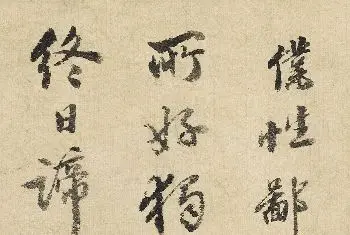 僕性鄙
所好獨
終日諦